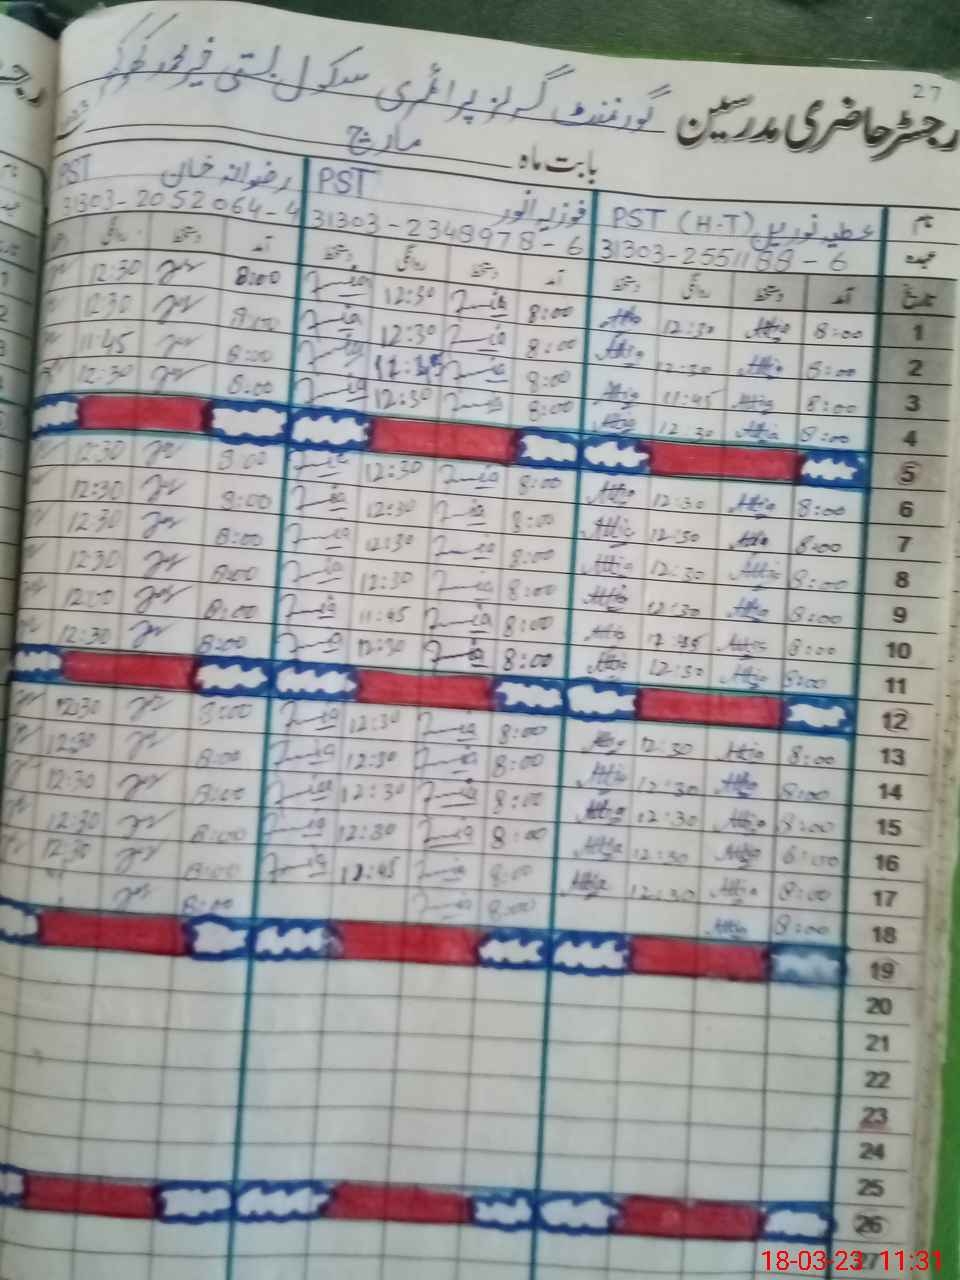 27
رجسٹر حاضری مدرسین گورنمنٹ گرلز پرائمری سکول بستی خیر محمد
بابت ماہ مارچ
نام عطیہ نورین PST (H-T) فوزیہ انور PST رضوانہ خان PST
عہدہ 31303-2551188-6 31303-2348978-6 31303-2052064-4
تاریخ آمد دستخط روانگی دستخط آمد دستخط روانگی دستخط آمد دستخط روانگی
1 8:00 Attia 12:30 8:00 فوزیہ 12:30 فوزیہ 8:00 12:30
2 8:00 Attia 12:30 8:00 فوزیہ 12:30 فوزیہ 8:00 12:30
3 8:00 Attia 11:45 Attia 8:00 فوزیہ 11:45 فوزیہ 8:00 11:45
4 8:00 Attia 12:30 Attia 8:00 فوزیہ 12:30 فوزیہ 8:00 12:30
5
6 8:00 Attia 12:30 Attia 8:00 فوزیہ 12:30 فوزیہ 8:00 12:30
7 8:00 Attia 12:30 Attia 8:00 فوزیہ 12:30 فوزیہ 8:00 12:30
8 8:00 Attia 12:30 Attia 8:00 فوزیہ 12:30 فوزیہ 8:00 12:30
9 8:00 Attia 12:30 Attia 8:00 فوزیہ 12:30 فوزیہ 8:00 12:30
10 8:00 Attia Attia 8:00 فوزیہ 11:45 فوزیہ 8:00 12:00
11 8:00 Attia 12:30 Attia 8:00 فوزیہ 12:30 فوزیہ 8:00 12:30
12
13 8:00 Attia 12:30 Attia 8:00 فوزیہ 12:30 فوزیہ 8:00 12:30
14 8:00 Attia 12:30 Attia 8:00 فوزیہ 12:30 فوزیہ 8:00 12:30
15 8:00 Attia 12:30 Attia 8:00 فوزیہ 12:30 فوزیہ 8:00 12:30
16 8:00 Attia 12:30 Attia 8:00 فوزیہ 12:30 فوزیہ 8:00 12:30
17 8:00 Attia 12:30 Attia 8:00 فوزیہ 12:45 فوزیہ 8:00 12:30
18 8:00 Attia 8:00 فوزیہ 8:00
19
20
21
22
23
24
25
26
27
18-03-23 11:31